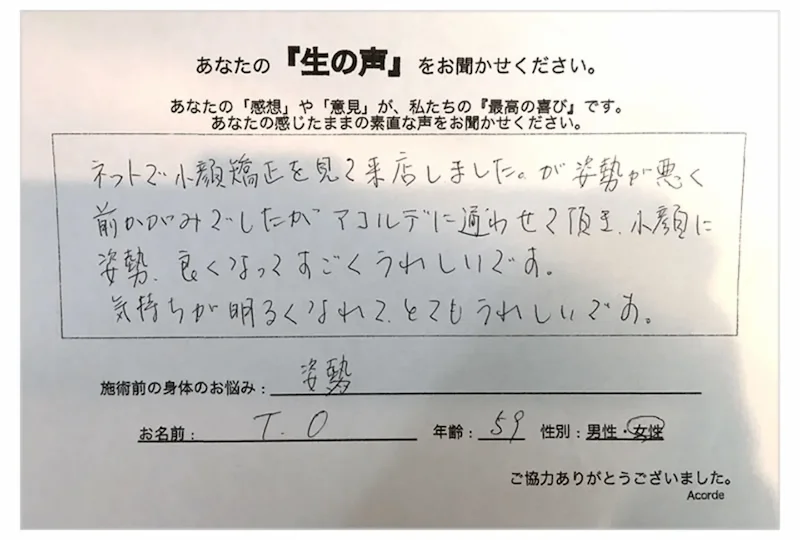 あなたの『生の声』をお聞かせください。
あなたの「感想」や「意見」が、私たちの『最高の喜び』です。
あなたの感じたままの素直な声をお聞かせください。
ネットで小顔矯正を見て来店しました。が姿勢が悪く
前かがみでしたがアコルデに通わせて頂き、小顔に
姿勢、良くなってすごくうれしいです。
気持ちが明るくなれて、とてもうれしいです。
施術前の身体のお悩み：姿勢
お名前：T.O 年齢：59 性別：男性・女性
ご協力ありがとうございました。
Acorde